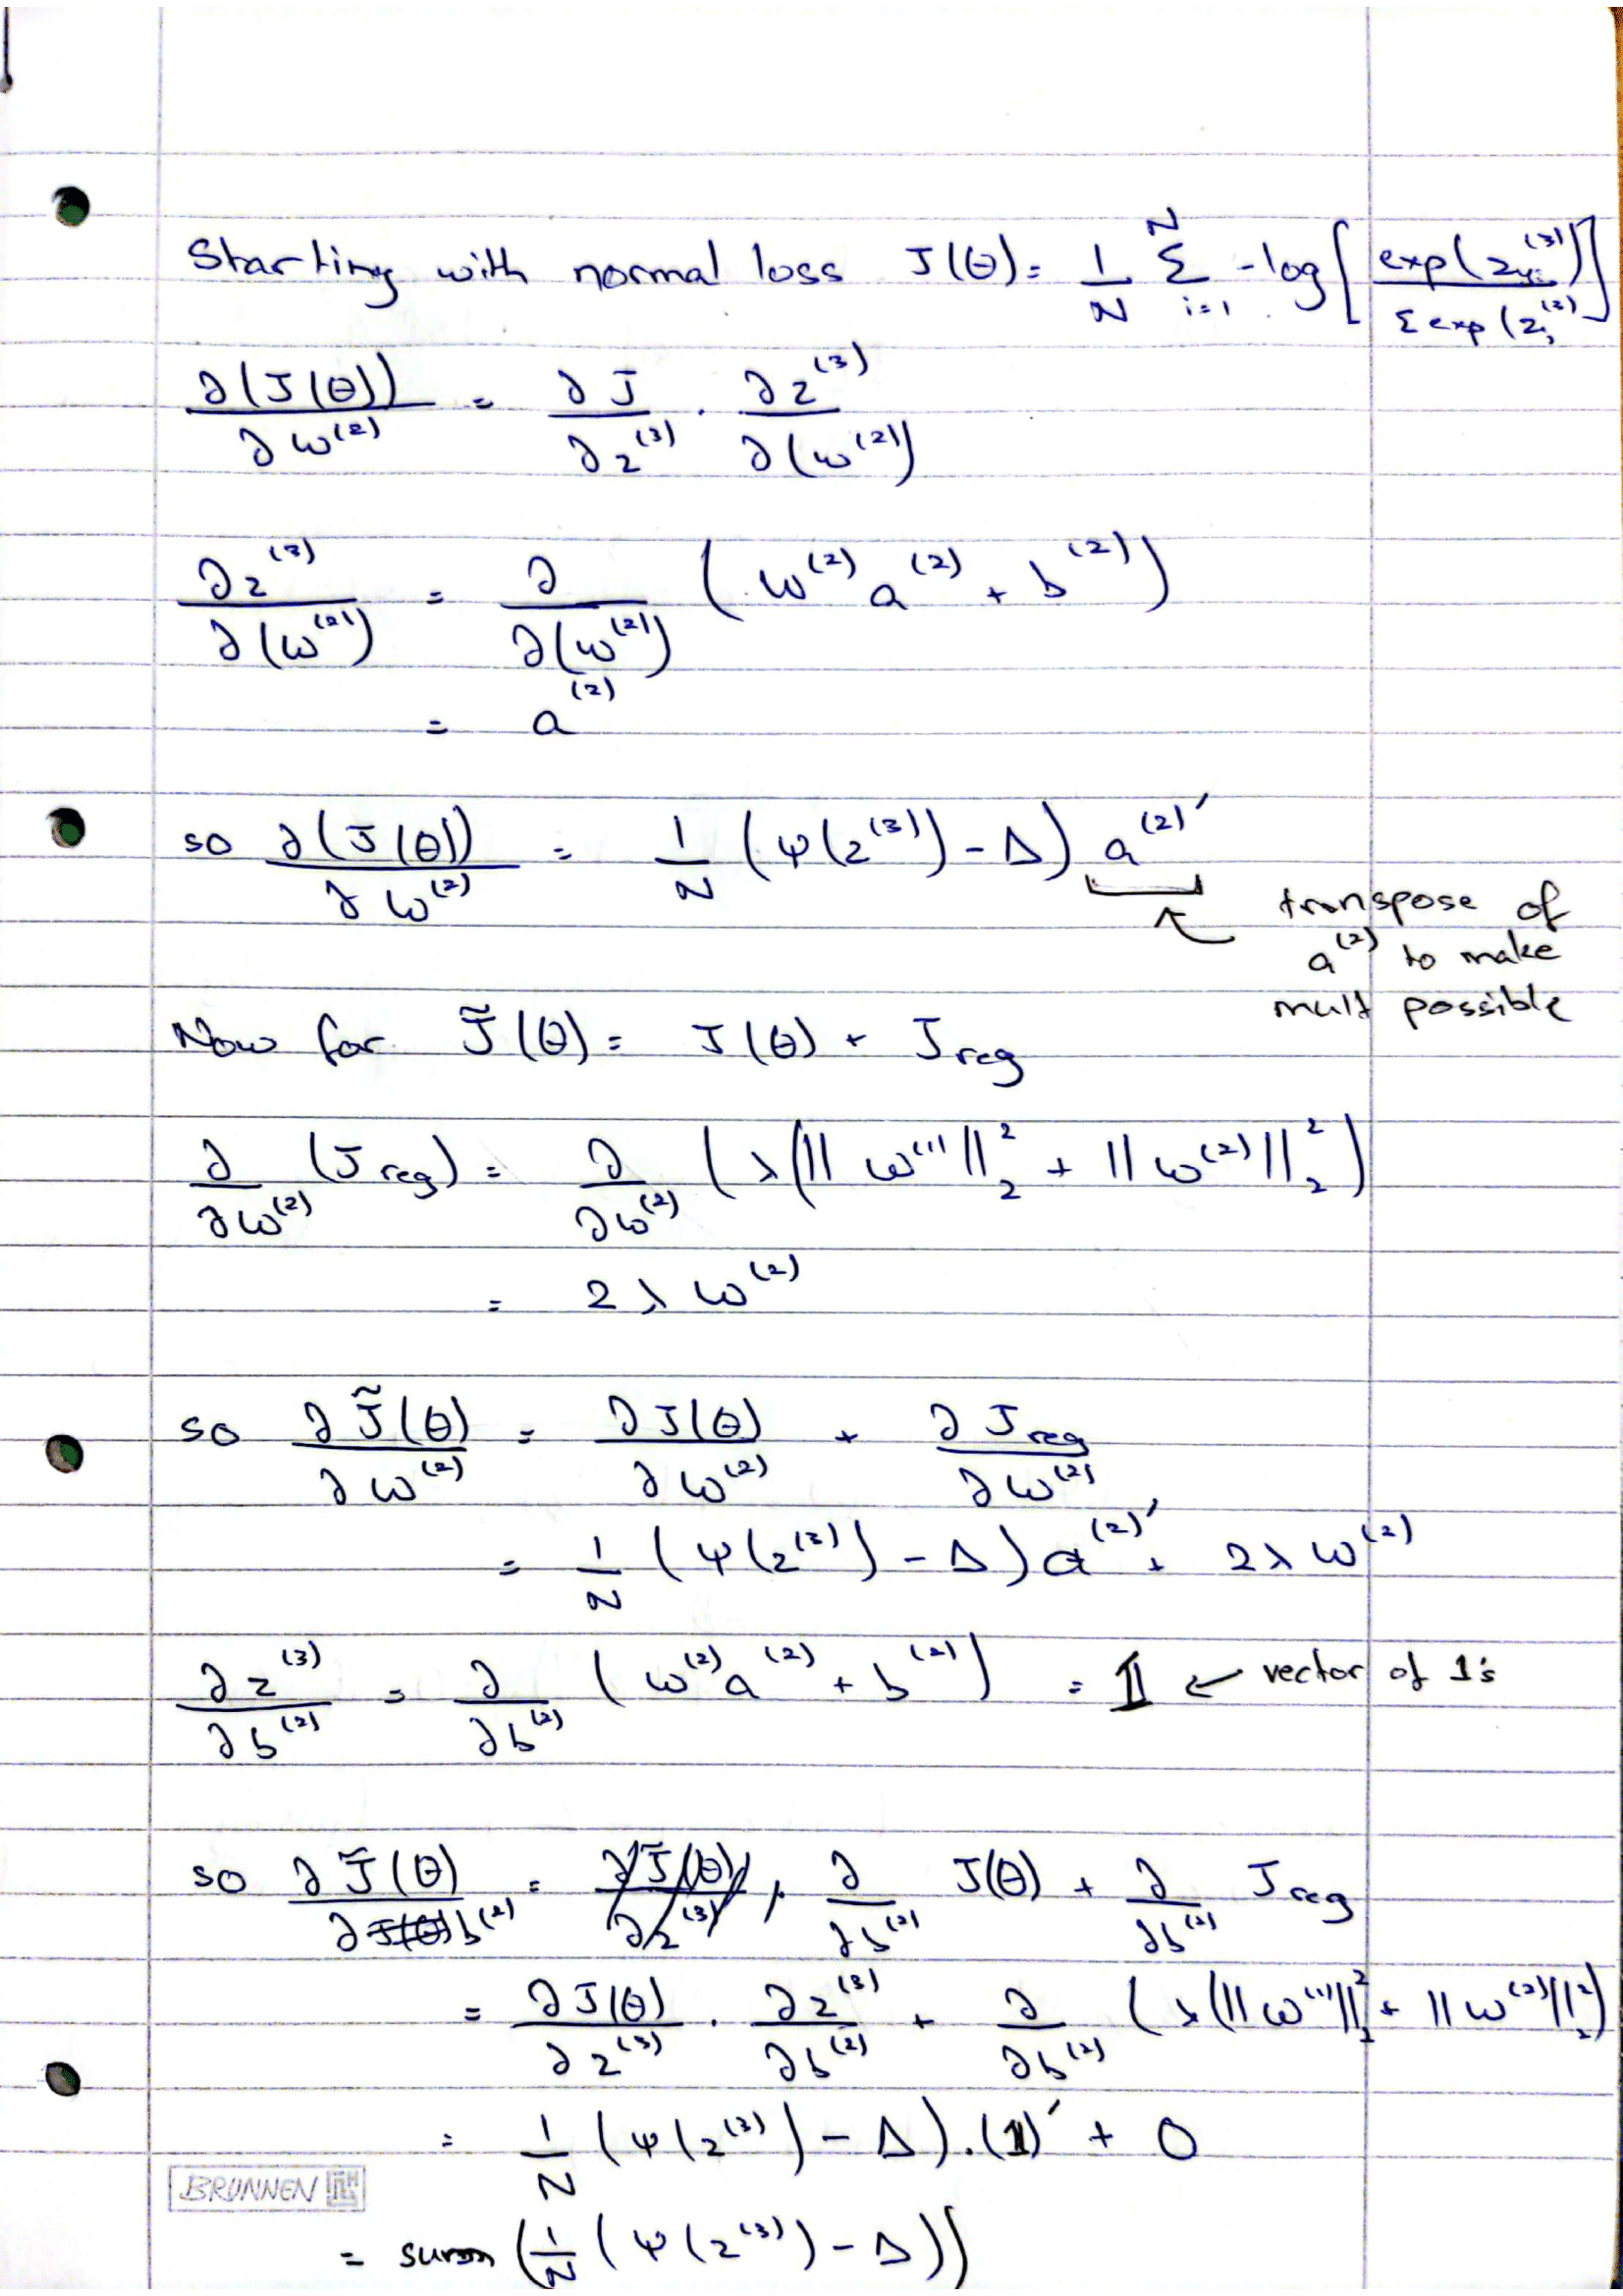 Starting with normal loss J(θ) = 1/N Σ_{i=1}^{N} -log[exp(z_{yi}^{(3)}) / Σ exp(z_j^{(3)})]
∂(J(θ))/∂w^{(2)} = ∂J/∂z^{(3)} · ∂z^{(3)}/∂(w^{(2)})
∂z^{(3)}/∂(w^{(2)}) = ∂/∂(w^{(2)}) (w^{(2)} a^{(2)} + b^{(2)})
= a^{(2)}
so ∂(J(θ))/∂w^{(2)} = 1/N (ψ(z^{(3)}) - Δ) a^{(2)'}
transpose of
a^{(2)} to make
mult possible
Now for J̃(θ) = J(θ) + J_reg
∂/∂w^{(2)} (J_reg) = ∂/∂w^{(2)} (λ(||w^{(1)}||_2^2 + ||w^{(2)}||_2^2)
= 2λw^{(2)}
so ∂J̃(θ)/∂w^{(2)} = ∂J(θ)/∂w^{(2)} + ∂J_reg/∂w^{(2)}
= 1/N (ψ(z^{(3)}) - Δ) a^{(2)'} + 2λw^{(2)}
∂z^{(3)}/∂b^{(2)} = ∂/∂b^{(2)} (w^{(2)} a^{(2)} + b^{(2)}) = 𝟙 ← vector of 1's
so ∂J̃(θ)/∂b^{(2)} = ∂/∂b^{(2)} J(θ) + ∂/∂b^{(2)} J_reg
= ∂J(θ)/∂z^{(3)} · ∂z^{(3)}/∂b^{(2)} + ∂/∂b^{(2)} (λ(||w^{(1)}||_2^2 + ||w^{(2)}||_2^2)
= 1/N (ψ(z^{(3)}) - Δ).(𝟙)' + 0
BRUNNEN
= sum (1/N (ψ(z^{(3)}) - Δ))